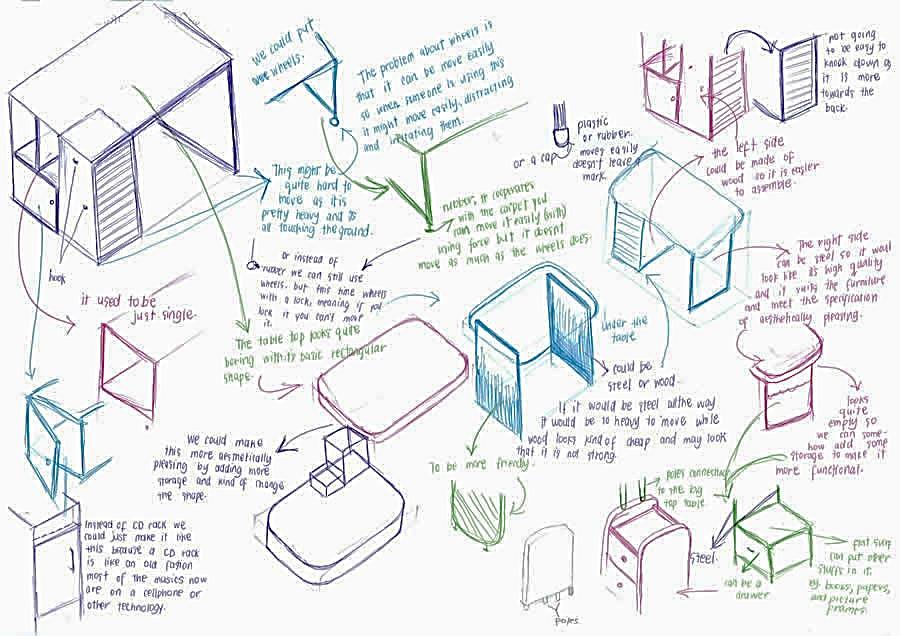 We could put
some wheels.
The problem about wheels is
that it can be move easily
so when someone is using this
it might move easily, distracting
and irritating them.
plastic
or rubber.
moves easily
doesn't leave a
mark.
or a cap
not going
to be easy to
knock down as
it is more
towards the
back.
the left side
could be made of
wood so it is easier
to assemble.
This might be
quite hard to
move as it is
pretty heavy and is
all touching the ground.
rubber, it cooperates
with the carpet you
can move it easily
using force but it doesn't
move as much as the wheels does.
or instead of
rubber we can still use
wheels. but this time wheels
with a lock, meaning if you
lock it you can't move
it.
hook
it used to be
just single.
The right side
can be steel so it would
look like it's high quality
and it suits the furniture
and meet the specification
of aesthetically pleasing.
The table top looks quite
boring with its basic rectangular
shape.
Under the
table
could be
steel or wood.
If it would be steel all the way
it would be so heavy to move while
wood looks kind of cheap and may look
that it is not strong.
looks
quite
empty so
we can some-
how add some
storage to make it
more functional.
We could make
this more aesthetically
pleasing by adding more
storage and kind of change
the shape.
To be more friendly.
poles connecting
to the big
top table.
Instead of CD rack we
could just make it like
this because a CD rack
is like an old fashion
most of the musics now
are on a cellphone or
other technology.
steel.
flat surf
can put other
stuffs in it.
eg. books, papers,
and picture
frames.
can be a
drawer
poles